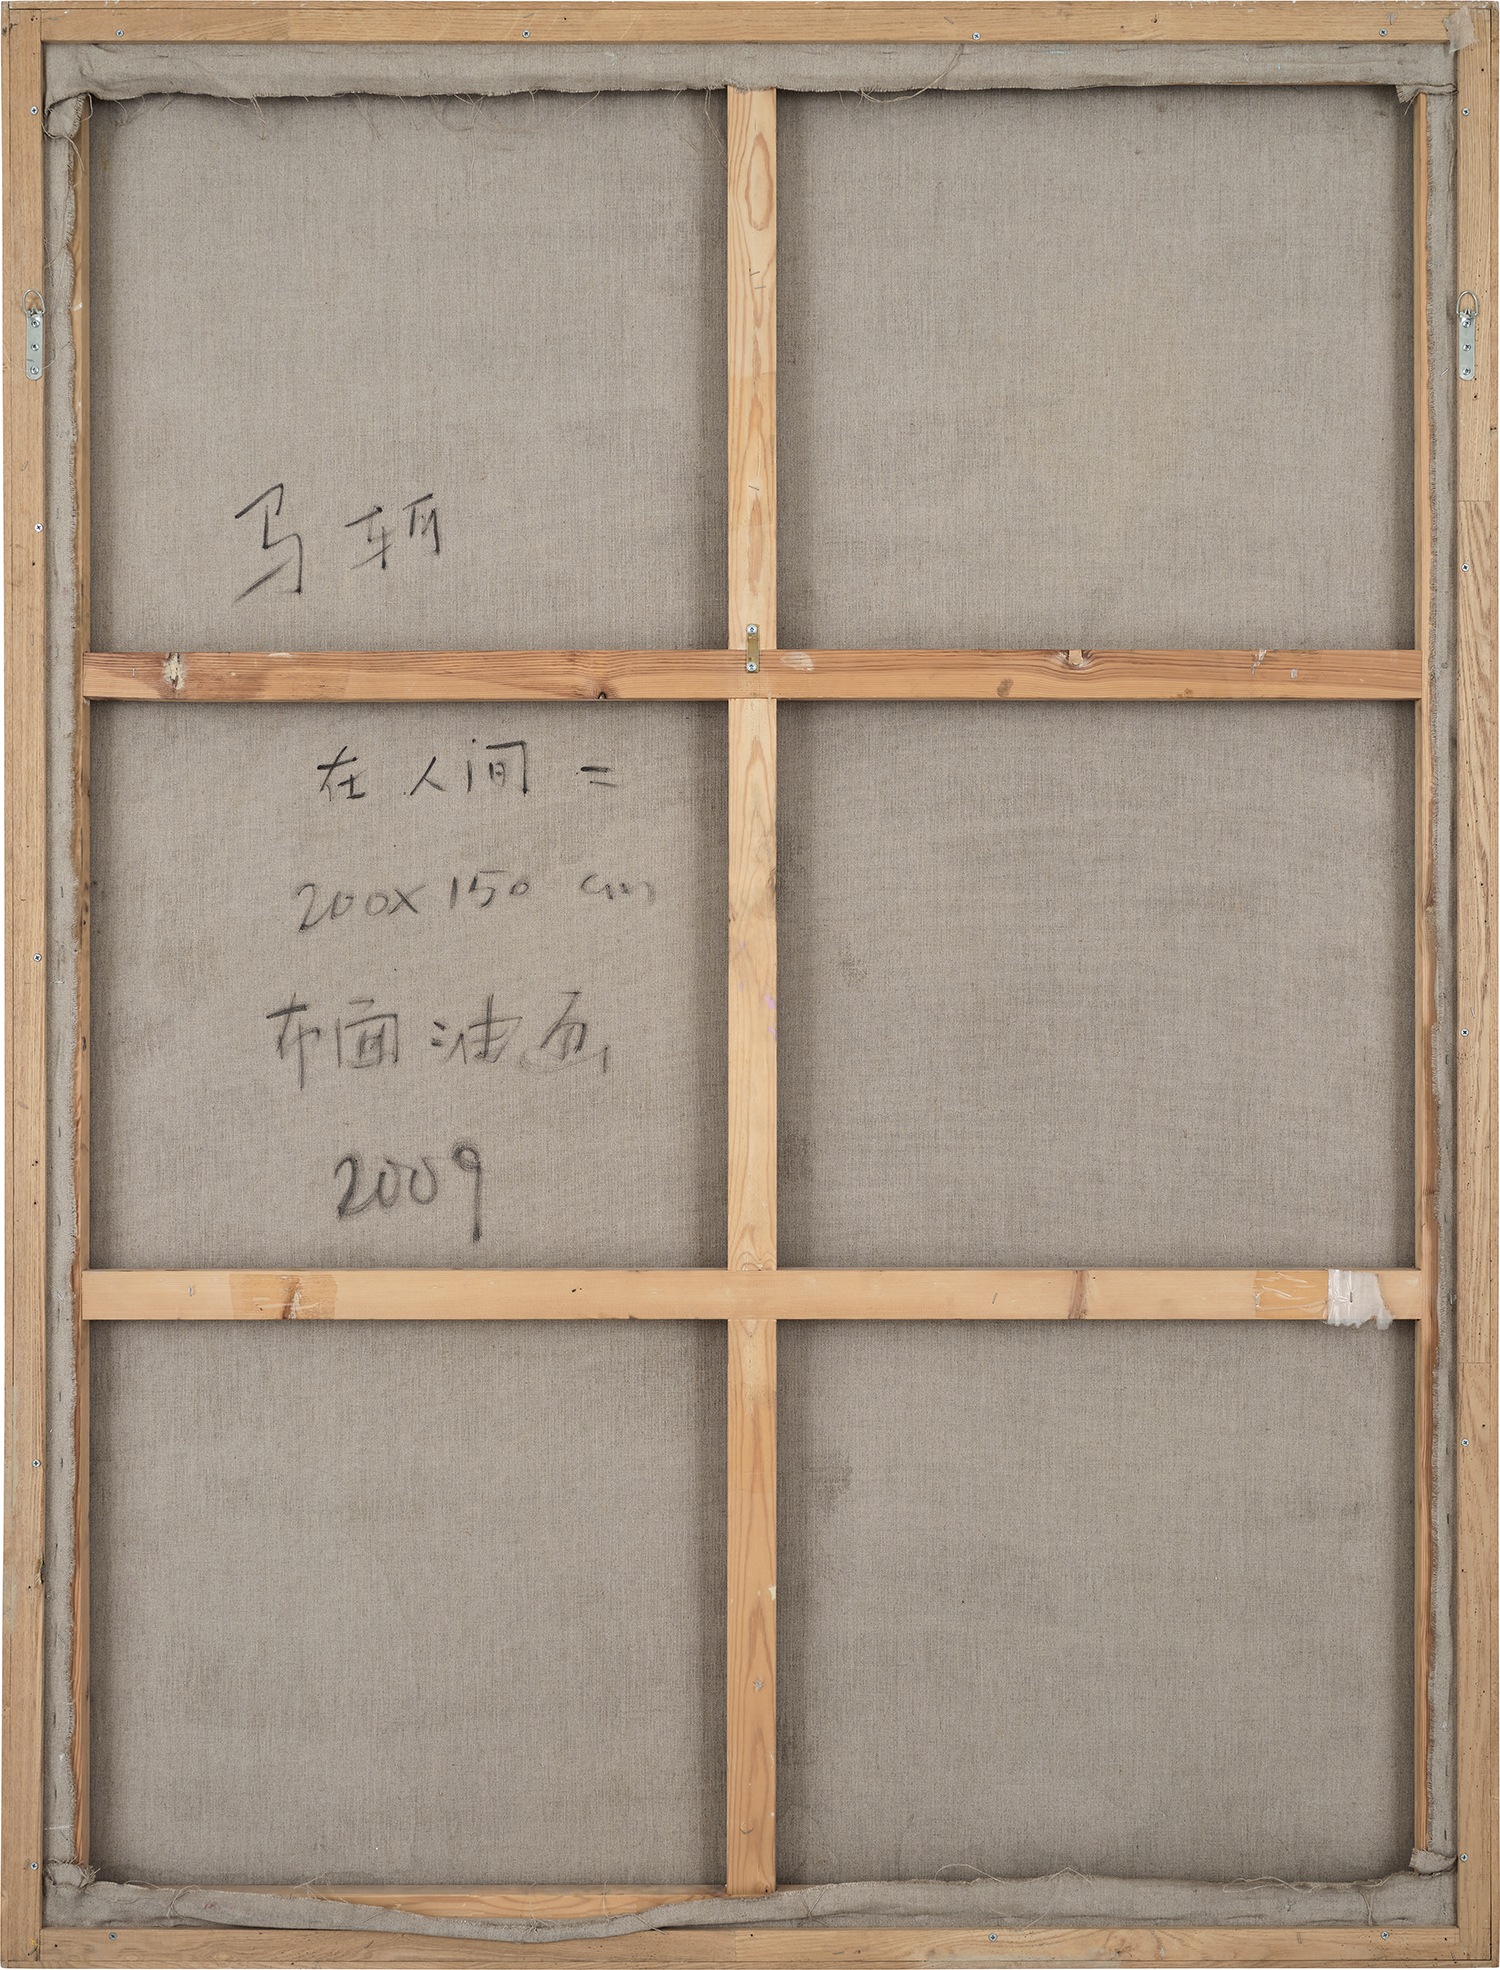 马轲
在人间 二
200x150 cm
布面油画
2009